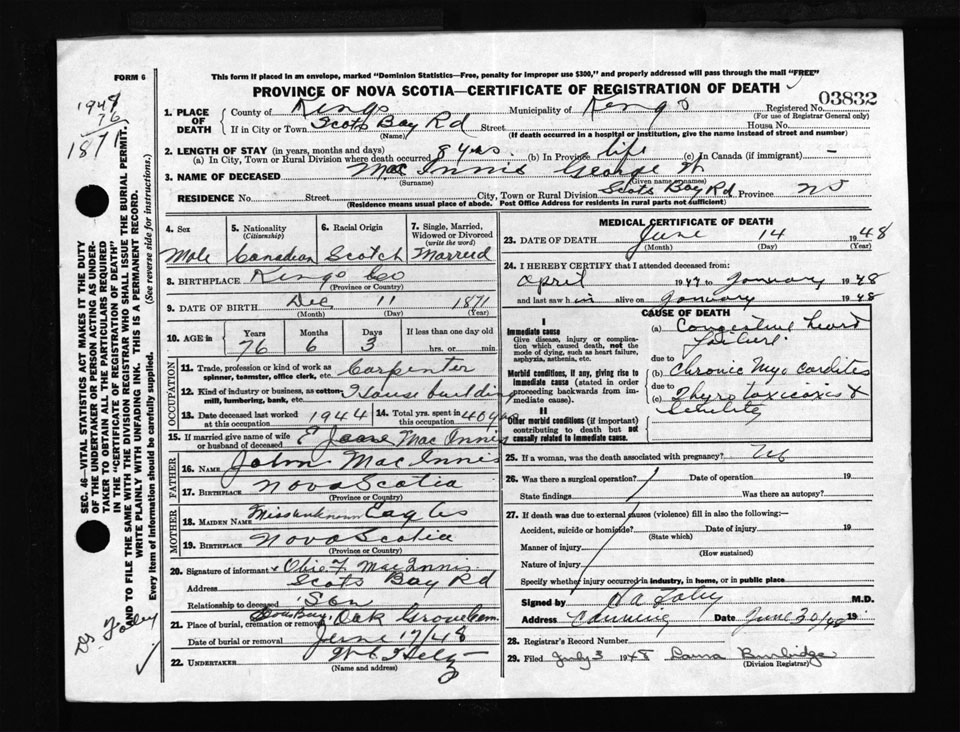 FORM 6
This form if placed in an envelope, marked "Dominion Statistics—Free, penalty for improper use $300," and properly addressed will pass through the mail "FREE"
PROVINCE OF NOVA SCOTIA—CERTIFICATE OF REGISTRATION OF DEATH
03832
1948
76
1871
1. PLACE OF DEATH
County of Kings Municipality of Kings Registered No.
(For use of Registrar General only)
If in City or Town Scots Bay Rd Street House No.
(Name) (If death occurred in a hospital or institution, give the name instead of street and number)
2. LENGTH OF STAY (in years, months and days)
(a) In City, Town or Rural Division where death occurred 8 yrs (b) In Province life (c) In Canada (if immigrant) —
3. NAME OF DECEASED Mac Innis George W.
(Surname) (Given or pname)
RESIDENCE No. Street City, Town or Rural Division Scots Bay Rd Province NS
(Residence means usual place of abode. Post Office Address for residents in rural parts not sufficient)
4. Sex
Male
5. Nationality (Citizenship)
Canadian
6. Racial Origin
Scotch
7. Single, Married, Widowed or Divorced (write the word)
Married
8. BIRTHPLACE Kings Co
(Province or Country)
9. DATE OF BIRTH Dec 11 1871
(Month) (Day) (Year)
10. AGE in Years Months Days If less than one day old
76 6 3 hrs. or min.
OCCUPATION
11. Trade, profession or kind of work as spinner, teamster, office clerk, etc. Carpenter
12. Kind of industry or business, as cotton-mill, lumbering, bank, etc. House building
13. Date deceased last worked at this occupation 1944
14. Total yrs. spent in this occupation 40 yrs
15. If married give name of wife or husband of deceased E Jane Mac Innis
FATHER
16. NAME John Mac Innis
17. BIRTHPLACE Nova Scotia
(Province or Country)
MOTHER
18. MAIDEN NAME Miss unknown Eagles
19. BIRTHPLACE Nova Scotia
(Province or Country)
20. Signature of informant x Obie F Mac Innis
Address Scots Bay Rd
Relationship to deceased Son
21. Place of burial, cremation or removal Scots Bay, Oak Grove Cem.
Date of burial or removal June 17/48
22. UNDERTAKER
(Name and address)
MEDICAL CERTIFICATE OF DEATH
23. DATE OF DEATH June 14 1948
(Month) (Day) (Year)
24. I HEREBY CERTIFY that I attended deceased from:
April 1947 to January 1948
and last saw him alive on January 1948
CAUSE OF DEATH
I
Immediate cause
Give disease, injury or complication which caused death, not the mode of dying, such as heart failure, asphyxia, asthenia, etc.
(a) Congestive heart failure
due to
Morbid conditions, if any, giving rise to immediate cause (stated in order proceeding backwards from immediate cause).
(b) Chronic Myocarditis
due to
(c) Thyrotoxicosis & Senility
II
Other morbid conditions (if important) contributing to death but not causally related to immediate cause.
25. If a woman, was the death associated with pregnancy? No
26. Was there a surgical operation? Date of operation 19
State findings Was there an autopsy?
27. If death was due to external causes (violence) fill in also the following:—
Accident, suicide or homicide? Date of injury 19
(State which)
Manner of injury
(How sustained)
Nature of injury
Specify whether injury occurred in industry, in home, or in public place
Signed by Foley M.D.
Address Canning Date June 30/48 19
28. Registrar's Record Number
29. Filed July 3 1948 Laura Burbidge
(Division Registrar)
SEC. 46—VITAL STATISTICS ACT MAKES IT THE DUTY OF THE UNDERTAKER OR PERSON ACTING AS UNDERTAKER TO OBTAIN ALL THE PARTICULARS REQUIRED IN THE "CERTIFICATE OF REGISTRATION OF DEATH" AND TO FILE THE SAME WITH THE DIVISION REGISTRAR WHO SHALL ISSUE THE BURIAL PERMIT.
WRITE PLAINLY WITH UNFADING INK. THIS IS A PERMANENT RECORD.
Every item of information should be carefully supplied. (See reverse side for instructions.)
Dr Foley